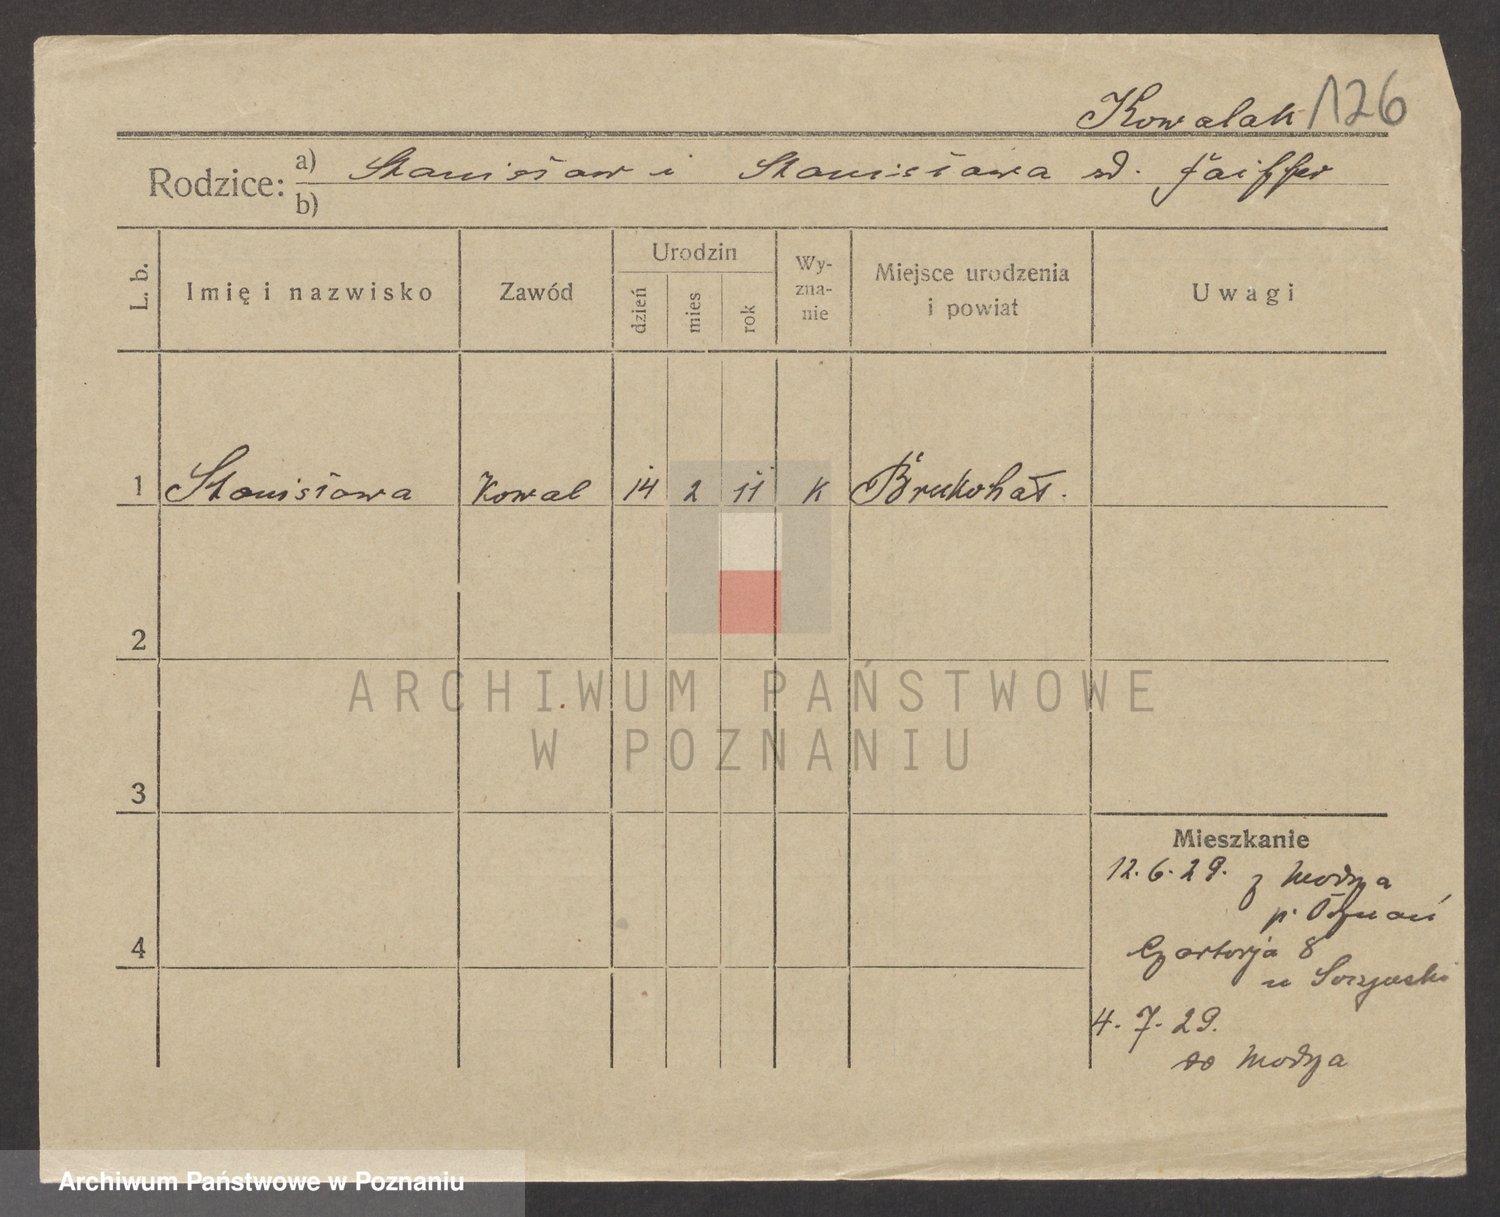 Kowalak 126
Rodzice: a) Stanisław i Stanisława
b)
L. b.
Imię i nazwisko
Zawód
Urodzin
dzień
mies
rok
Wy-
zna-
nie
Miejsce urodzenia
i powiat
Uwagi
1 Stanisława Kowal 14 2 11 K
2
ARCHIWUM PAŃSTWOWE
W POZNANIU
3
Mieszkanie
12. 6. 29. z
4
8
u
4. 7. 29.
do
Archiwum Państwowe w Poznaniu